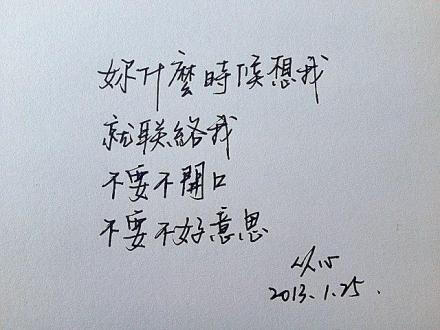 妳什麼時候想我
就联絡我
不要不開口
不要不好意思
从心
2013.1.25.